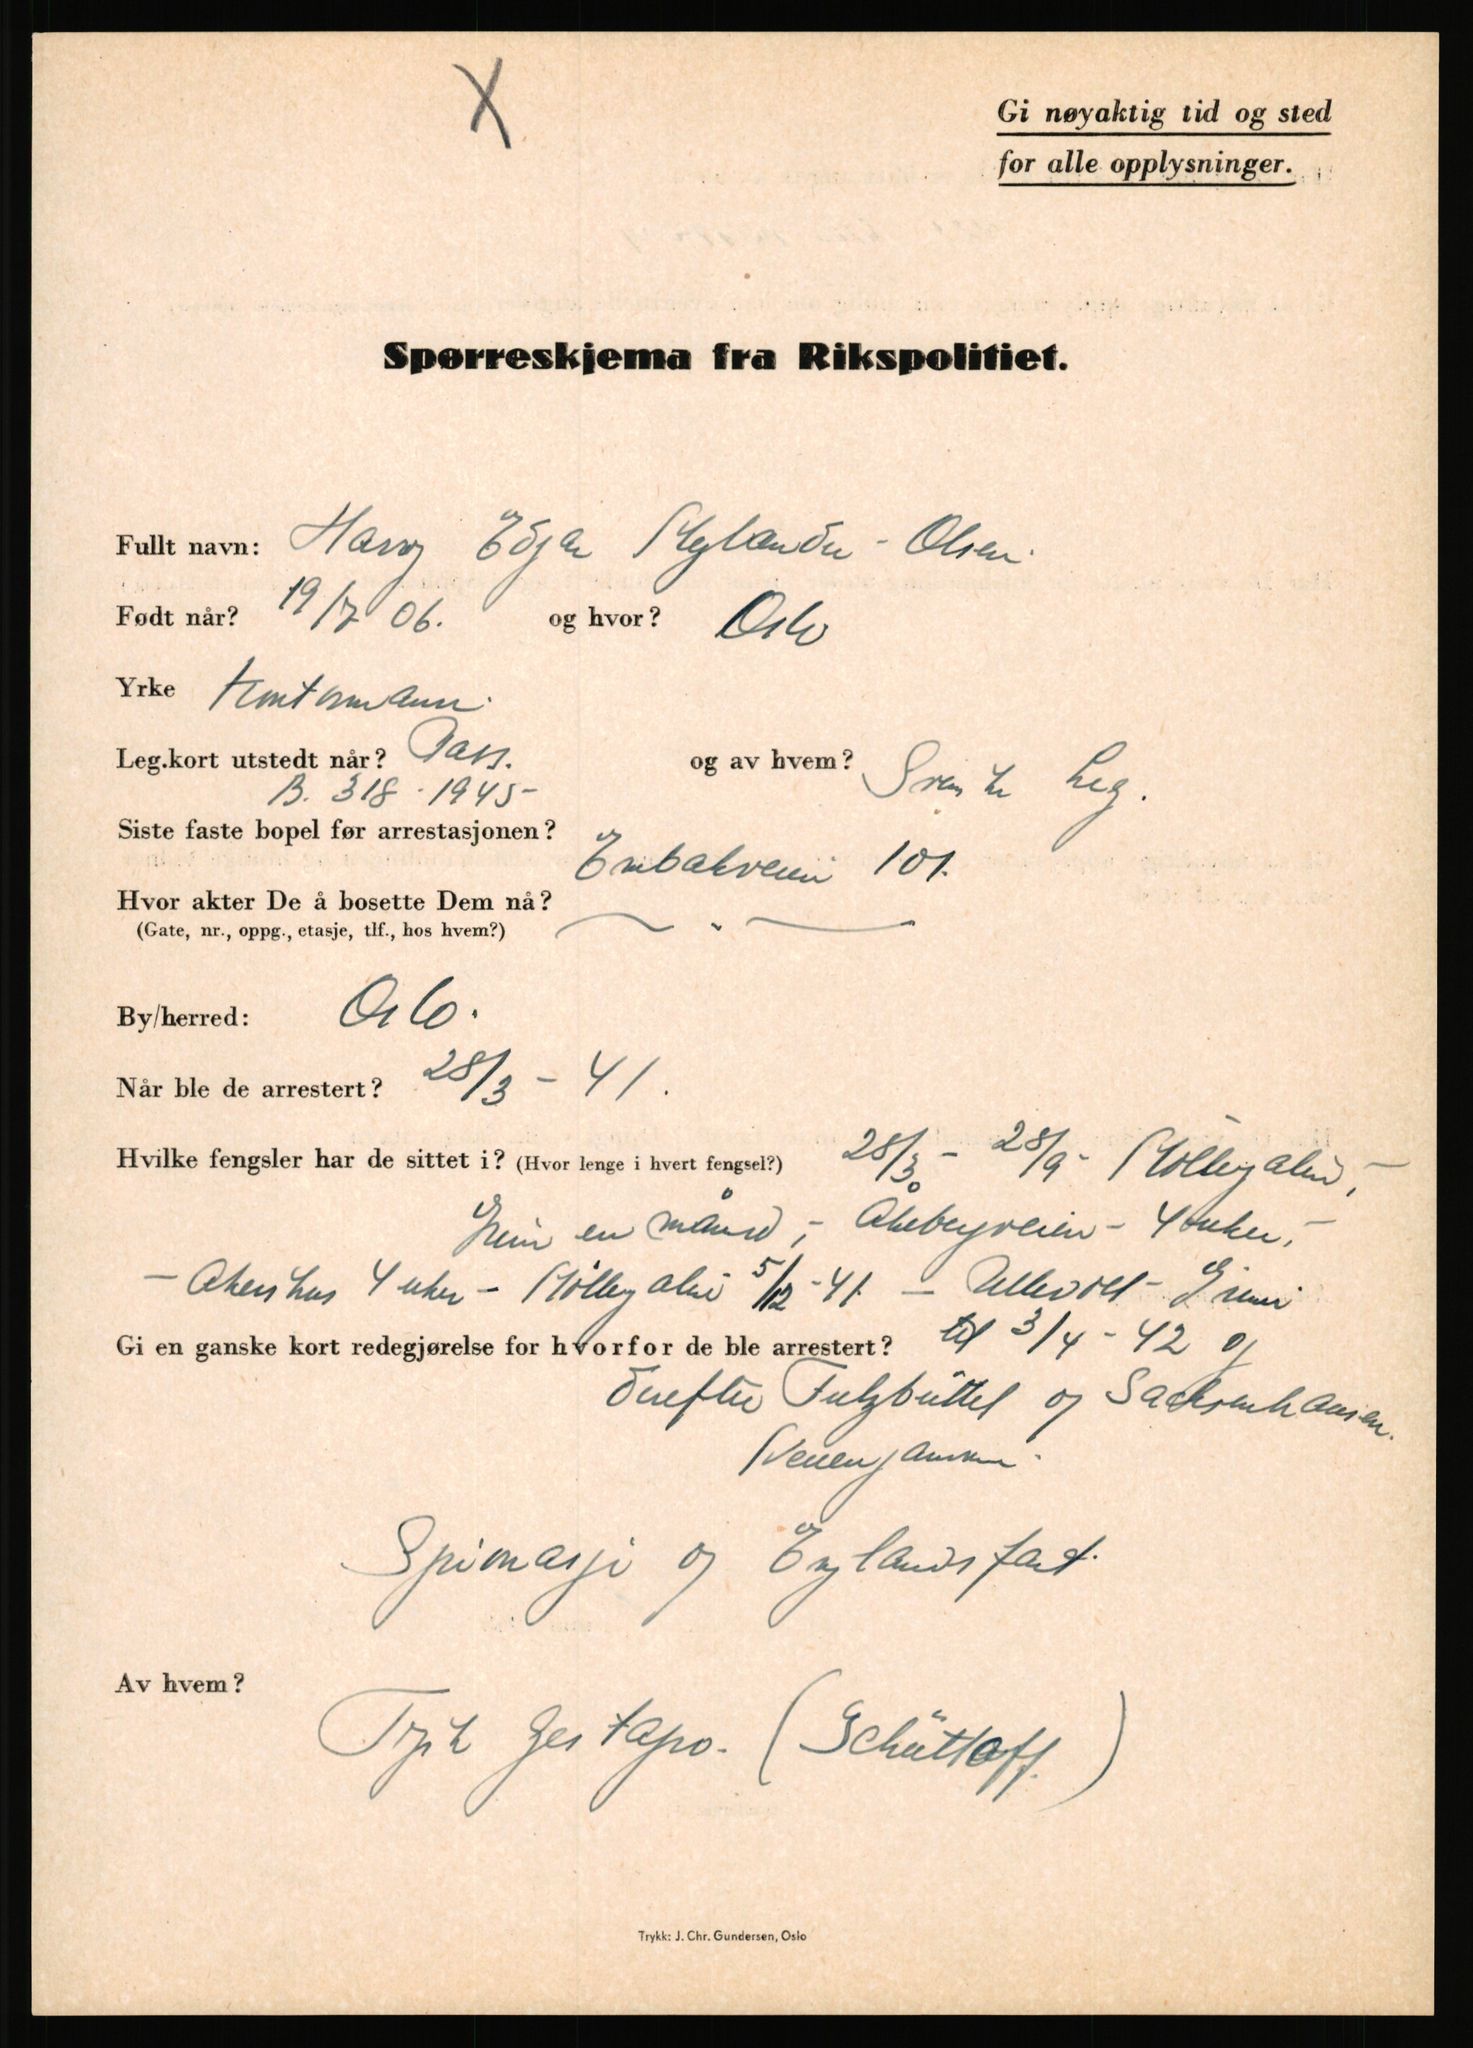 X
Gi nøyaktig tid og sted
for alle opplysninger.
Spørreskjema fra Rikspolitiet.
Fullt navn: Harry Edgar Mylander-Olsen.
Født når? 19/7 06. og hvor? Oslo
Yrke Kontormann.
Leg.kort utstedt når? Pass. og av hvem? Svensk Leg.
B. 318 - 1945 -
Siste faste bopel før arrestasjonen? Enebakveien 101.
Hvor akter De å bosette Dem nå? — " —
(Gate, nr., oppg., etasje, tlf., hos hvem?)
By/herred: Oslo.
Når ble de arrestert? 28/3 - 41.
Hvilke fengsler har de sittet i? (Hvor lenge i hvert fengsel?) 28/3 - 28/9 - Møllergaten, -
Grini en måned, - Åkebergveien - 4 uker, -
- Akershus 4 uker - Møllergaten 5/12 - 41. - Ullevål - Grini
Gi en ganske kort redegjørelse for hvorfor de ble arrestert? til 3/4 - 42 og
derefter Fulzbüttel og Sachsenhausen.
Neuengamme.
Spionasje og Englandsfart.
Av hvem?
Tysk Gestapo. (Schüttoff.)
Trykk: J. Chr. Gundersen, Oslo